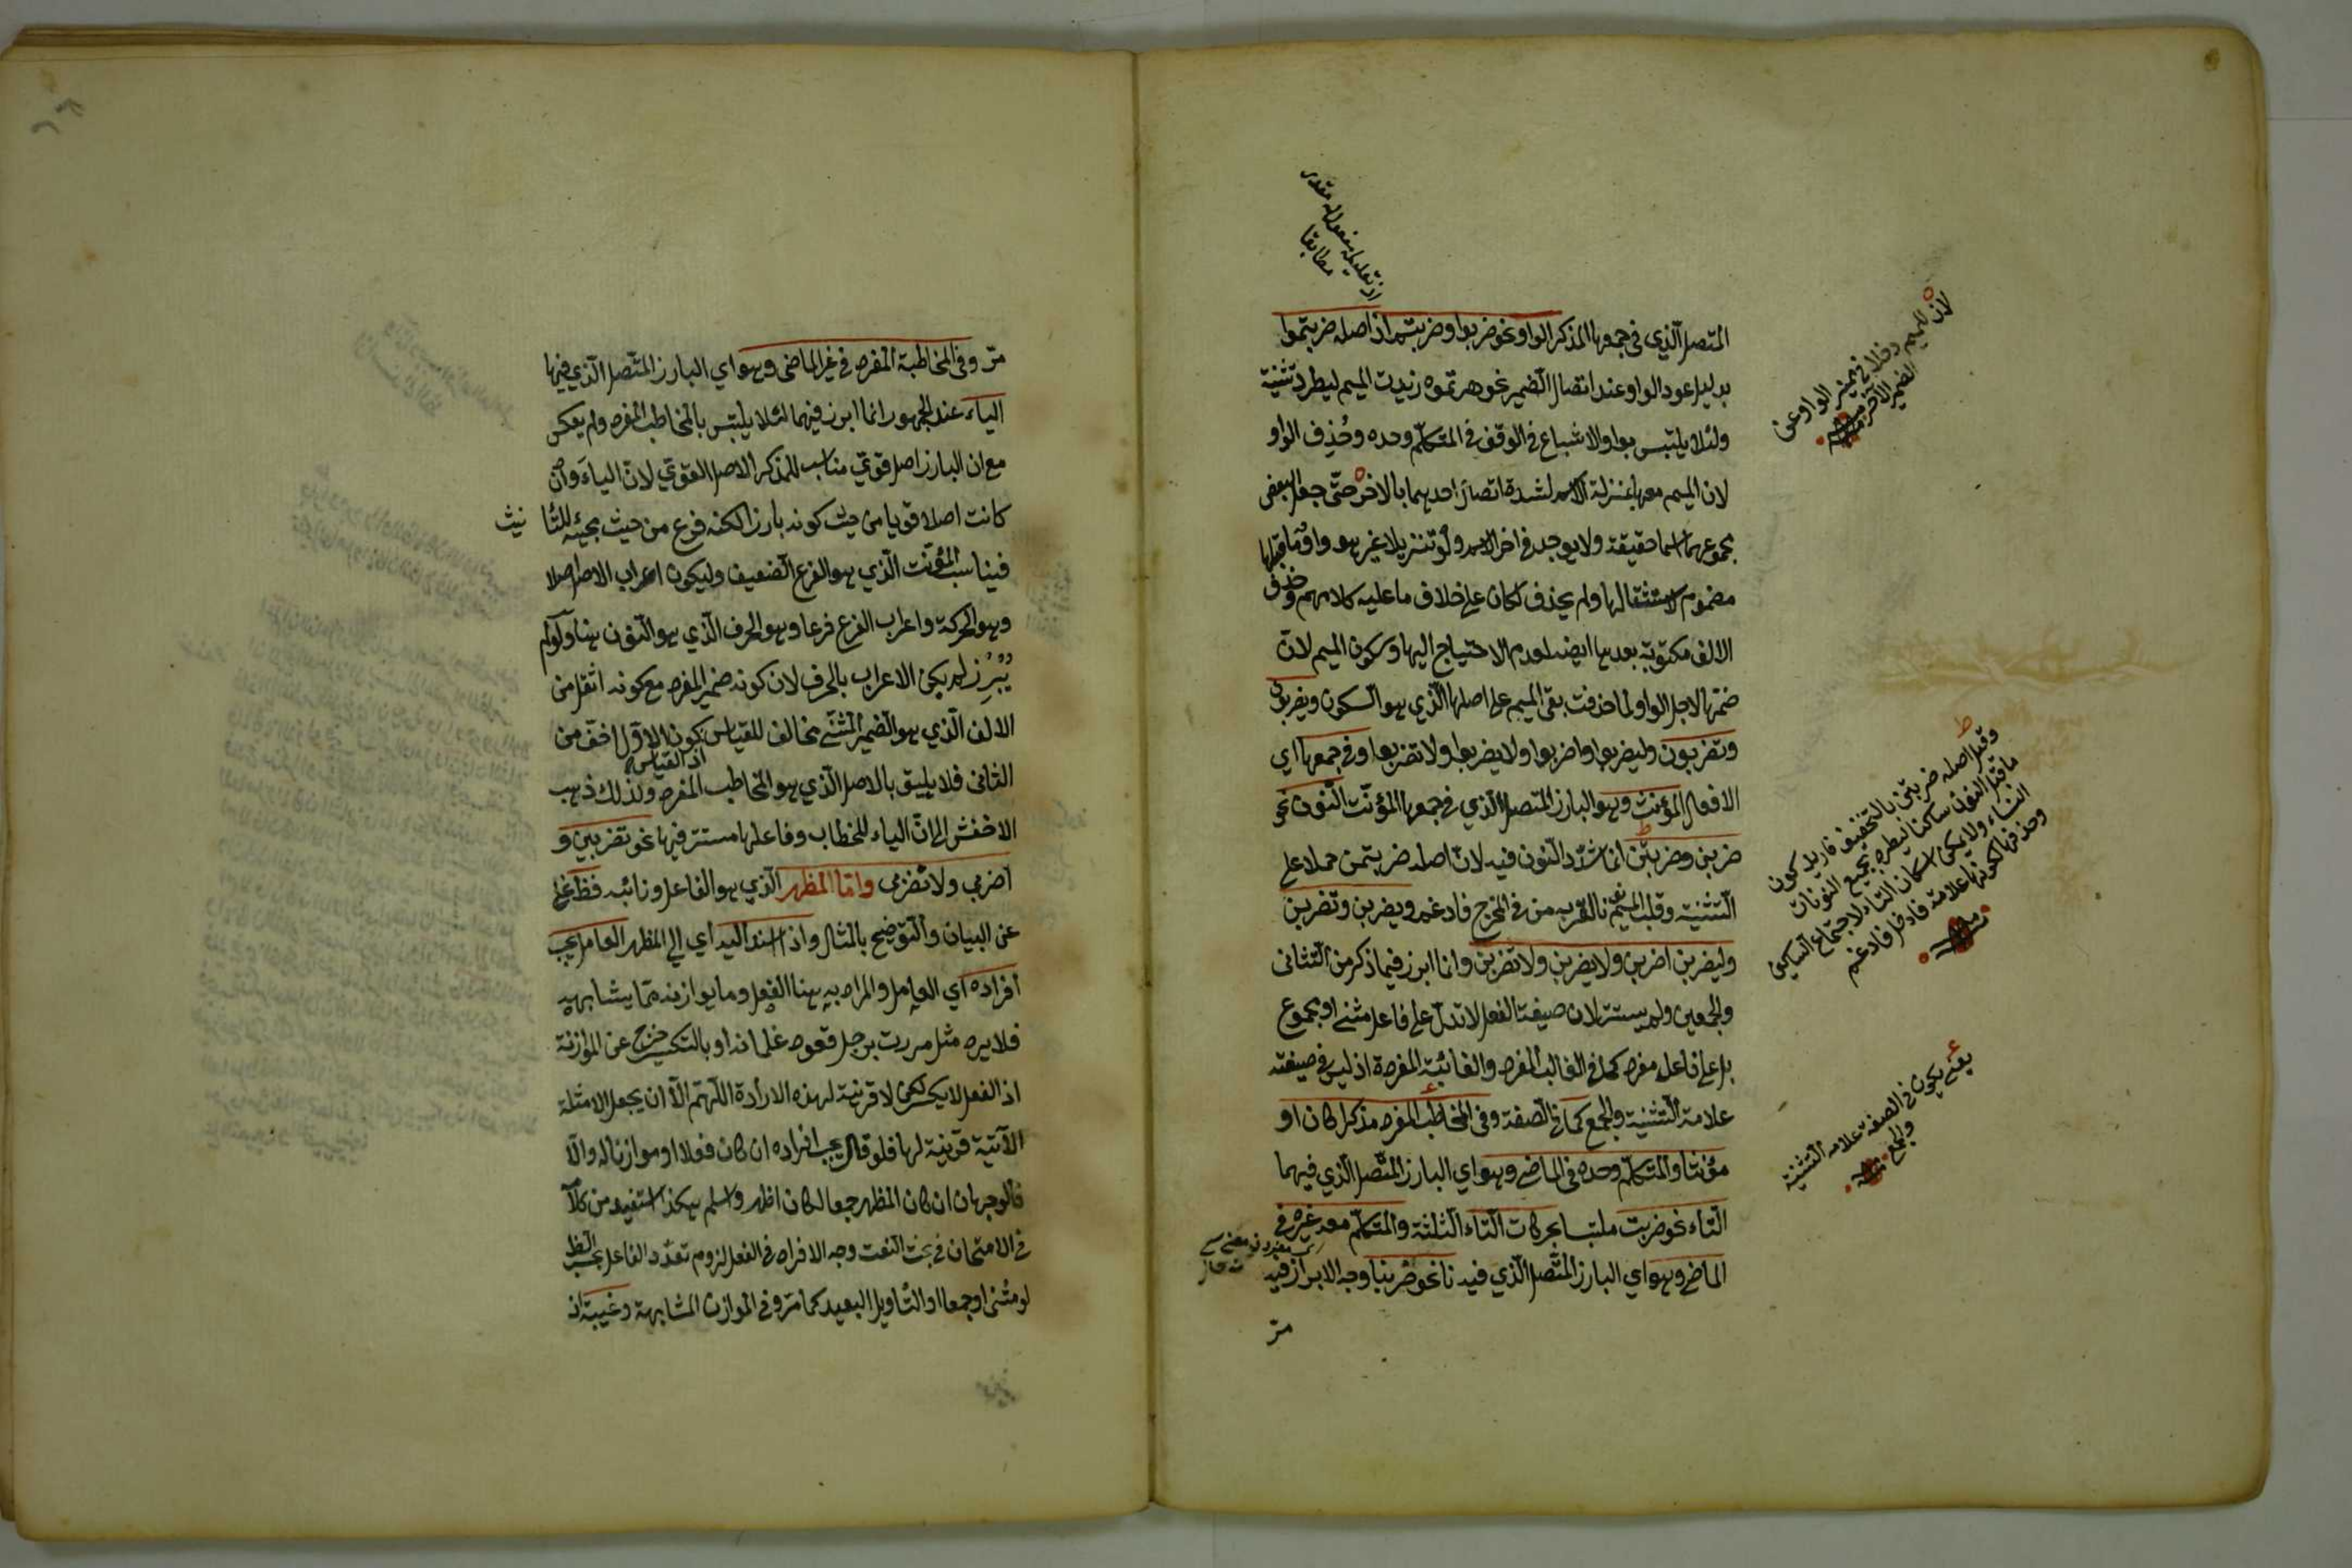 المتصل الذي في جمعها المذكر الواو نحو ضربوا وضربتم اذ اصله ضربتموا
بدليل عود الواو عند اتصال الضمير نحو ضربتموه زيدت الميم ليطرد تثنية
ولئلا يلتبس بواو الاشباع في الوقف في المتكلم وحده وحُذف الواو
لان الميم معها بمنزلة الاسم لشدة اتصال احدهما بالاخر حتّى جعل البعض
مجموعهما اسما حقيقة ولا يوجد في اخر الاسم ولو تنزيلا غير هو واو ما قبلها
مضموم لاستثقالها ولم يحذف لكان على خلاف ما عليه كلامهم وحذف
الالف مكتوبة بعدها ايضا لعدم الاحتياج اليها وسكون الميم لانّ
ضمّها لاجل الواو لما حذفت بقي الميم على اصلها الذي هو السكون ويضربون
وتضربون وليضربوا واضربوا ولا يضربوا ولا تضربوا وفي جمعها اي
الافعال المؤنث وهو البارز المتصل الذي في جمعها المؤنّث النّون نحو
ضربن وضربتنّ انما شدّد النّون فيه لانّ اصله ضربتمن حملا على
التّثنية وقلب الميم نونا لقربه من في المخرج فادغم ويضربن وتضربن
وليضربن اضربن ولا يضربن ولا تضربن وانما ابرز فيما ذكر من التثانى
والجمعين ولم يستتر لان صيغة الفعل لا تدلّ على فاعل مثنى او مجموع
بل على فاعل مفرد كما في الغائب المفرد والغائبة المفردة اذ ليس في صيغته
علامة التّثنية والجمع كما في الصفة وفي المخاطب المفرد مذكرا كان او
مؤنثا والمتكلّم وحده في الماضي وهو اي البارز المتّصل الذي فيهما
التّاء نحو ضربت ملتبسا بحركات التّاء الثلثة والمتكلّم معه غيره في
الماضي وهو اي البارز المتّصل الذي فيه نا نحو ضربنا وجه الابراز فيه
مرّ
لان للميم دخلا في تميز الواو عن
الضمير الاخر منه
وقيل اصله ضربتن بالتخفيف فاريد كون
ما قبل النون ساكنا ليطرد بجميع النونات
النساء ولا يمكن اسكان التاء لاجتماع الساكنين
وحذفها لكونها علامة فادخل فادغم
منه
يعنى يكون في الصفة علامة التثنية
والجمع منه
مرّ وفي المخاطبة المفرد في غير الماضي وهو اي البارز المتّصل الذي فيها
الياء عند الجمهور انما ابرز فيهما لئلا يلتبس بالمخاطب المفرد ولم يعكس
مع ان البارز اصل قويّ مناسب للمذكر الاصل القويّ لانّ الياءَ وان
كانت اصلا قويا من حيث كونه بارزا لكنه فرع من حيث مجيئه للتأنيث
فيناسب المؤنّث الذي هو الفرع الضعيف وليكون اعراب الاصل اصلا
وهو الحركة واعراب الفرع فرعا وهو الحرف الذي هو النّون هنا ولو لم
يُبْرِز لم يكن الاعراب بالحرف لان كونه ضمير المفرد مع كونه اثقل من
الالف الذي هو الضمير المثنّى مخالف للقياس اذ القياس كون الاوّل اخفّ من
الثانى فلا يليق بالاصل الذي هو المخاطب المفرد ولذلك ذهب
الاخفش الى انّ الياء للخطاب وفاعلها مستتر فيها نحو تضربين و
اضربي ولا تضربي وامّا المظهر الذي هو الفاعل ونائبه فظ غنى
عن البيان والتّوضيح بالمثال واذا اسند اليه اي الى المظهر العامل يجب
افراده اي العامل والمراد به هنا الفعل وما يوازنه ممّا يشابهه
فلا يرد مثل مررت برجل قعود غلمانه او بالتكسير خرج عن الموازنة
اذ الفعل لا يكسر لكن لا قرينة لهذه الارادة اللّهمّ الّا ان يجعل الامثلة
الآتية قرينة لها فلو قال يجب افراده ان كان فعلا او موازنا له والّا
فالوجهان ان كان المظهر جمعا لكان اظهر واسلم هكذا استفيد من كلامه
في الامتحان في بحث النعت وجه الافراد في الفعل لزوم تعدّد الفاعل بحسب الظ
لو مثنى او جمعا او التأويل البعيد كما مرّ وفي الموازن المشابهة وغيبة اذ